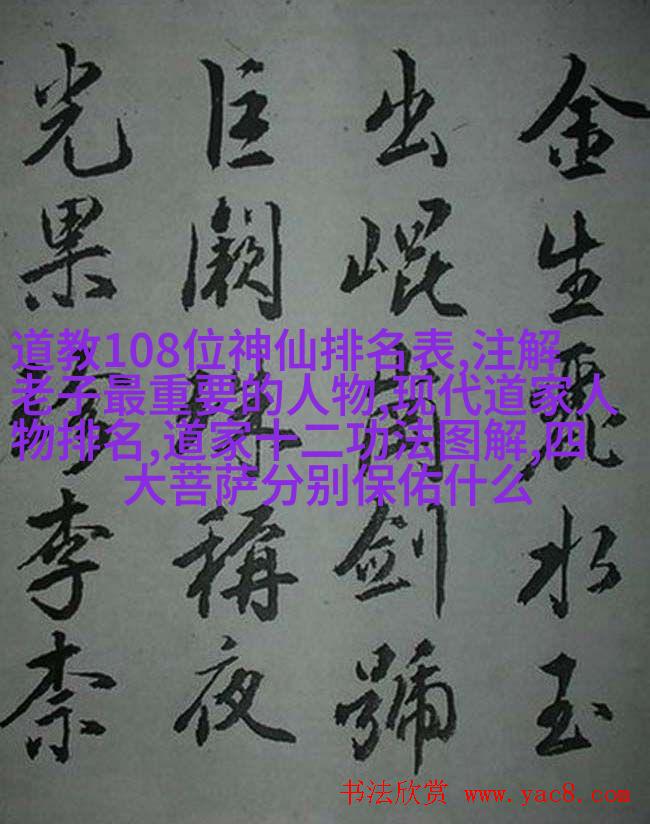 金生麗水玉
出崐岡劍號
巨闕珠稱夜
光果珍李柰
道教108位神仙排名表,注解
老子最重要的人物,现代道家人
物排名,道家十二功法图解,四
大菩萨分别保佑什么
书法欣赏 www.yac8.com